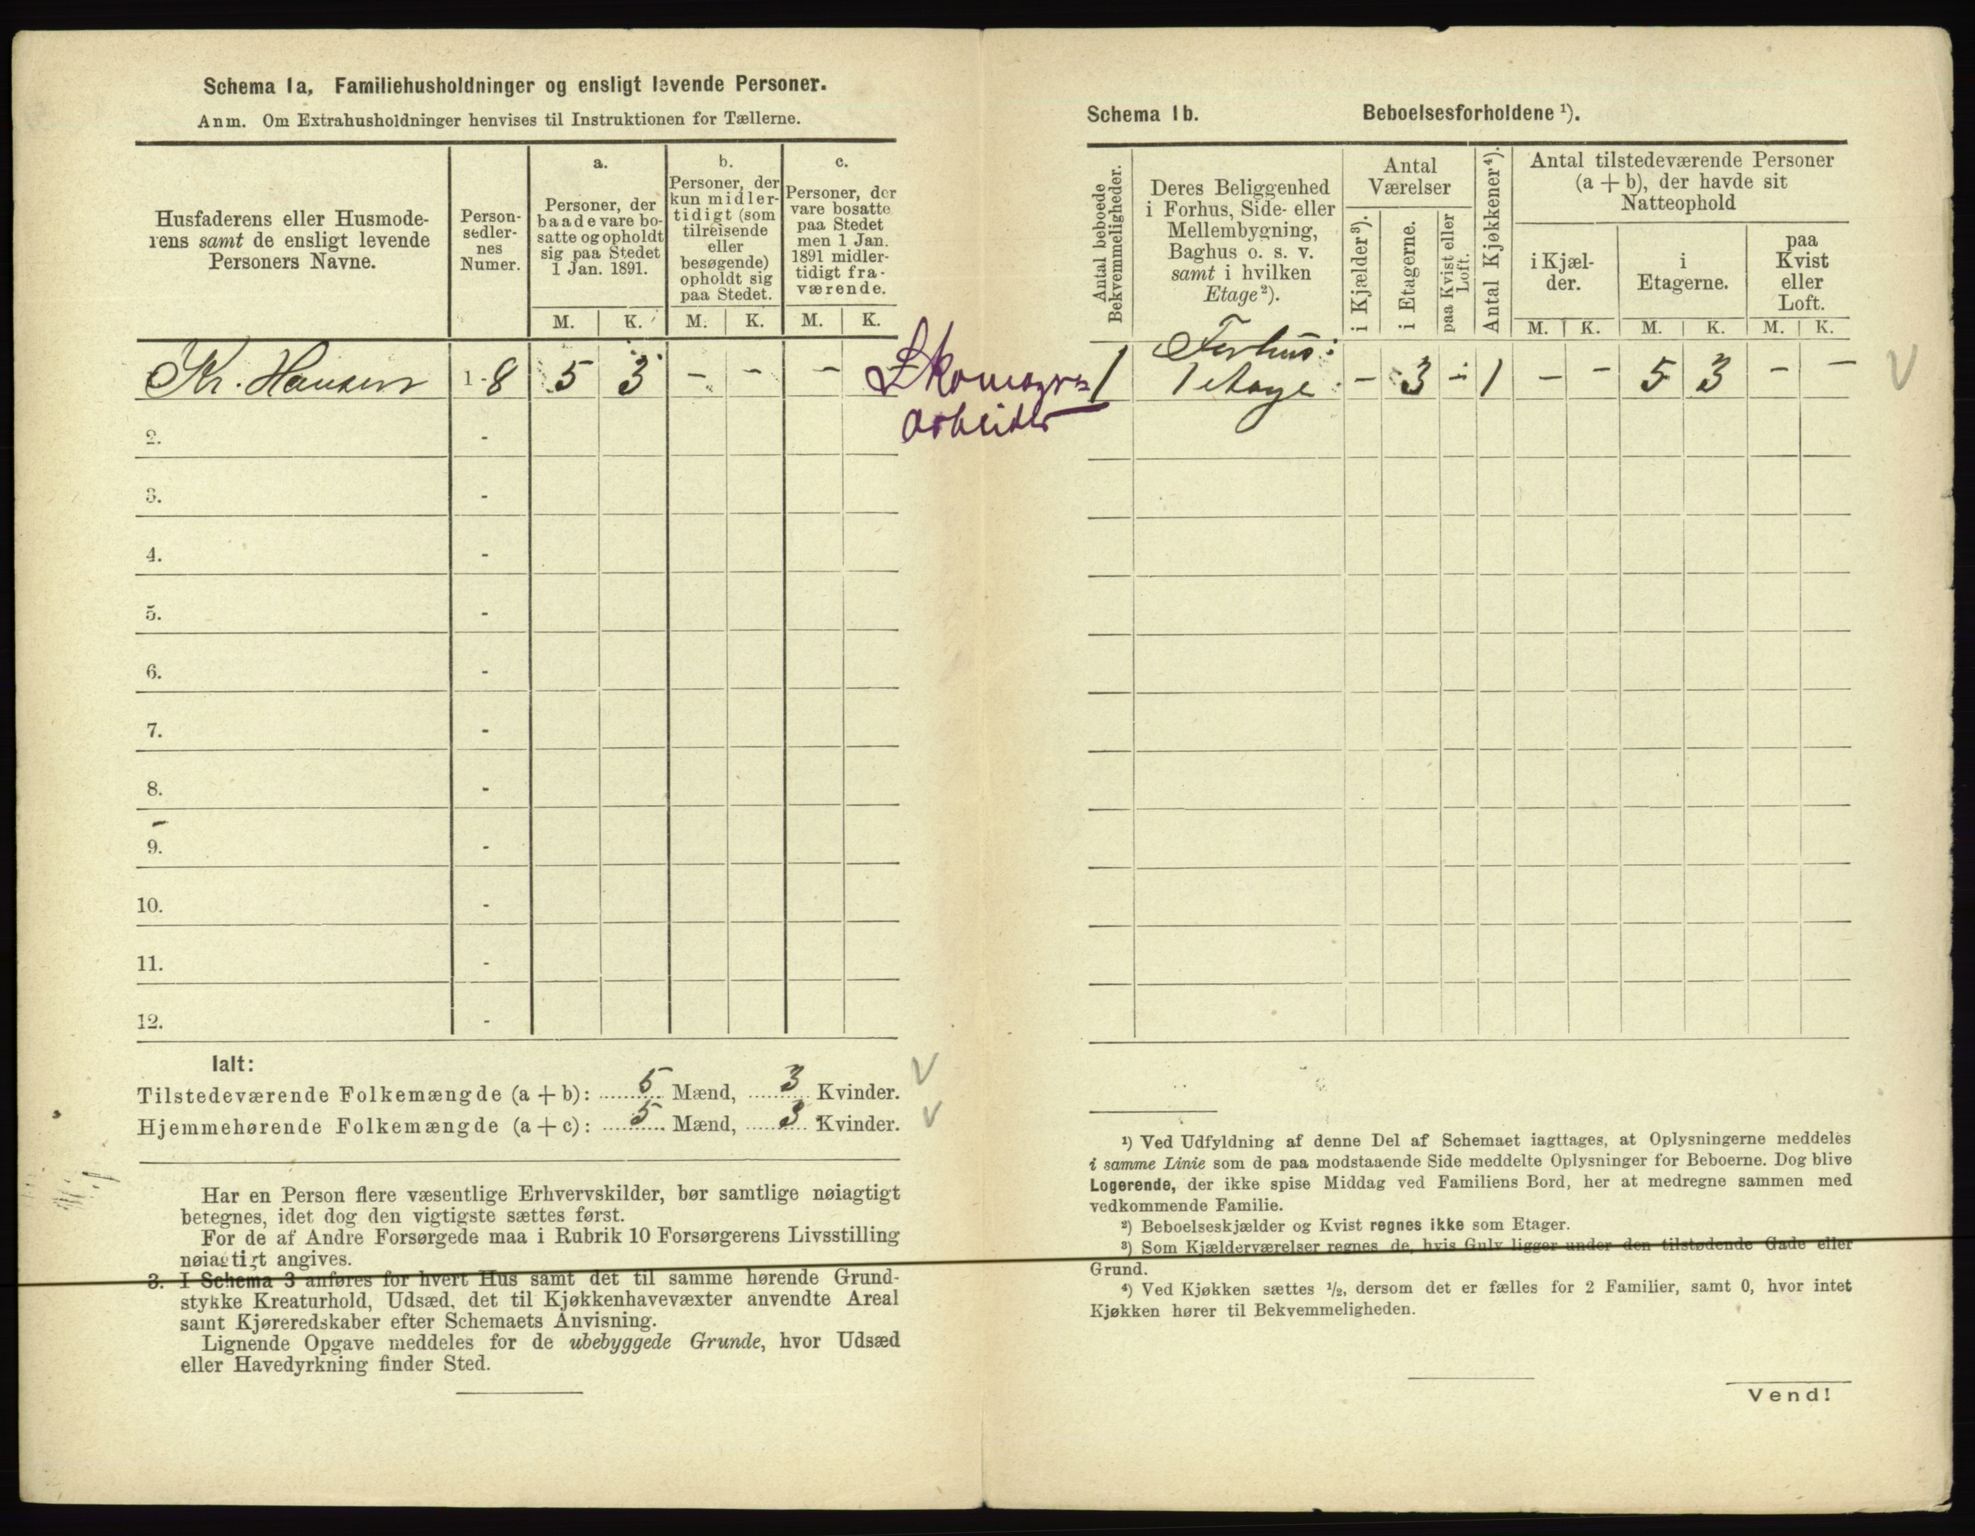 Schema 1a, Familiehusholdninger og ensligt levende Personer.
Anm. Om Extrahusholdninger henvises til Instruktionen for Tællerne.
Husfaderens eller Husmode-
rens samt de ensligt levende
Personers Navne.
Person-
sedler-
nes
Numer.
a.
Personer, der
baade vare bo-
satte og opholdt
sig paa Stedet
1 Jan. 1891.
b.
Personer, der
kun midler-
tidigt (som
tilreisende
eller
besøgende)
opholdt sig
paa Stedet.
c.
Personer, der
vare bosatte
paa Stedet
men 1 Jan.
1891 midler-
tidigt fra-
værende.
M. K. M. K. M. K.
Kr. Hansen 1-8 5 3 - - -
2. -
3. -
4. -
5. -
6. -
7. -
8. -
9. -
10. -
11. -
12. -
Ialt:
Tilstedeværende Folkemængde (a + b): 5 Mænd, 3 Kvinder.
Hjemmehørende Folkemængde (a + c): 5 Mænd, 3 Kvinder.
Har en Person flere væsentlige Erhvervskilder, bør samtlige nøiagtigt
betegnes, idet dog den vigtigste sættes først.
For de af Andre Forsørgede maa i Rubrik 10 Forsørgerens Livsstilling
nøiagtigt angives.
3. I Schema 3 anføres for hvert Hus samt det til samme hørende Grund-
stykke Kreaturhold, Udsæd, det til Kjøkkenhavevæxter anvendte Areal
samt Kjøreredskaber efter Schemaets Anvisning.
Lignende Opgave meddeles for de ubebyggede Grunde, hvor Udsæd
eller Havedyrkning finder Sted.
arbeider
Schema 1b. Beboelsesforholdene ¹).
Antal beboede
Bekvemmeligheder.
Deres Beliggenhed
i Forhus, Side- eller
Mellembygning,
Baghus o. s. v.
samt i hvilken
Etage²).
Antal
Værelser
i Kjælder³).
i Etagerne.
paa Kvist eller
Loft.
Antal Kjøkkener⁴).
Antal tilstedeværende Personer
(a + b), der havde sit
Natteophold
i Kjæl-
der.
i
Etagerne.
paa
Kvist
eller
Loft.
M. K. M. K. M. K.
Forhus:
1 1 etage - 3 - 1 - - 5 3 - -
¹) Ved Udfyldning af denne Del af Schemaet iagttages, at Oplysningerne meddeles
i samme Linie som de paa modstaaende Side meddelte Oplysninger for Beboerne. Dog blive
Logerende, der ikke spise Middag ved Familiens Bord, her at medregne sammen med
vedkommende Familie.
²) Beboelseskjælder og Kvist regnes ikke som Etager.
³) Som Kjælderværelser regnes de, hvis Gulv ligger under den tilstødende Gade eller
Grund.
⁴) Ved Kjøkken sættes ½, dersom det er fælles for 2 Familier, samt 0, hvor intet
Kjøkken hører til Bekvemmeligheden.
Vend!